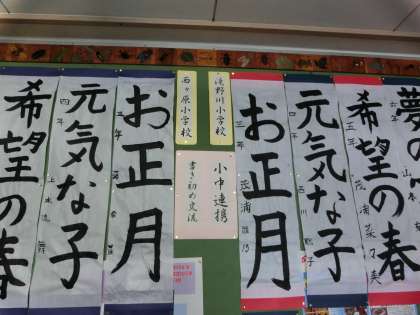 夢の
希望の春
五年
元気な子
四年
お正月
三年
滝野川小学校
西ヶ原小学校
小中連携
書き初め交流
お正月
三年
元気な子
四年
希望の春